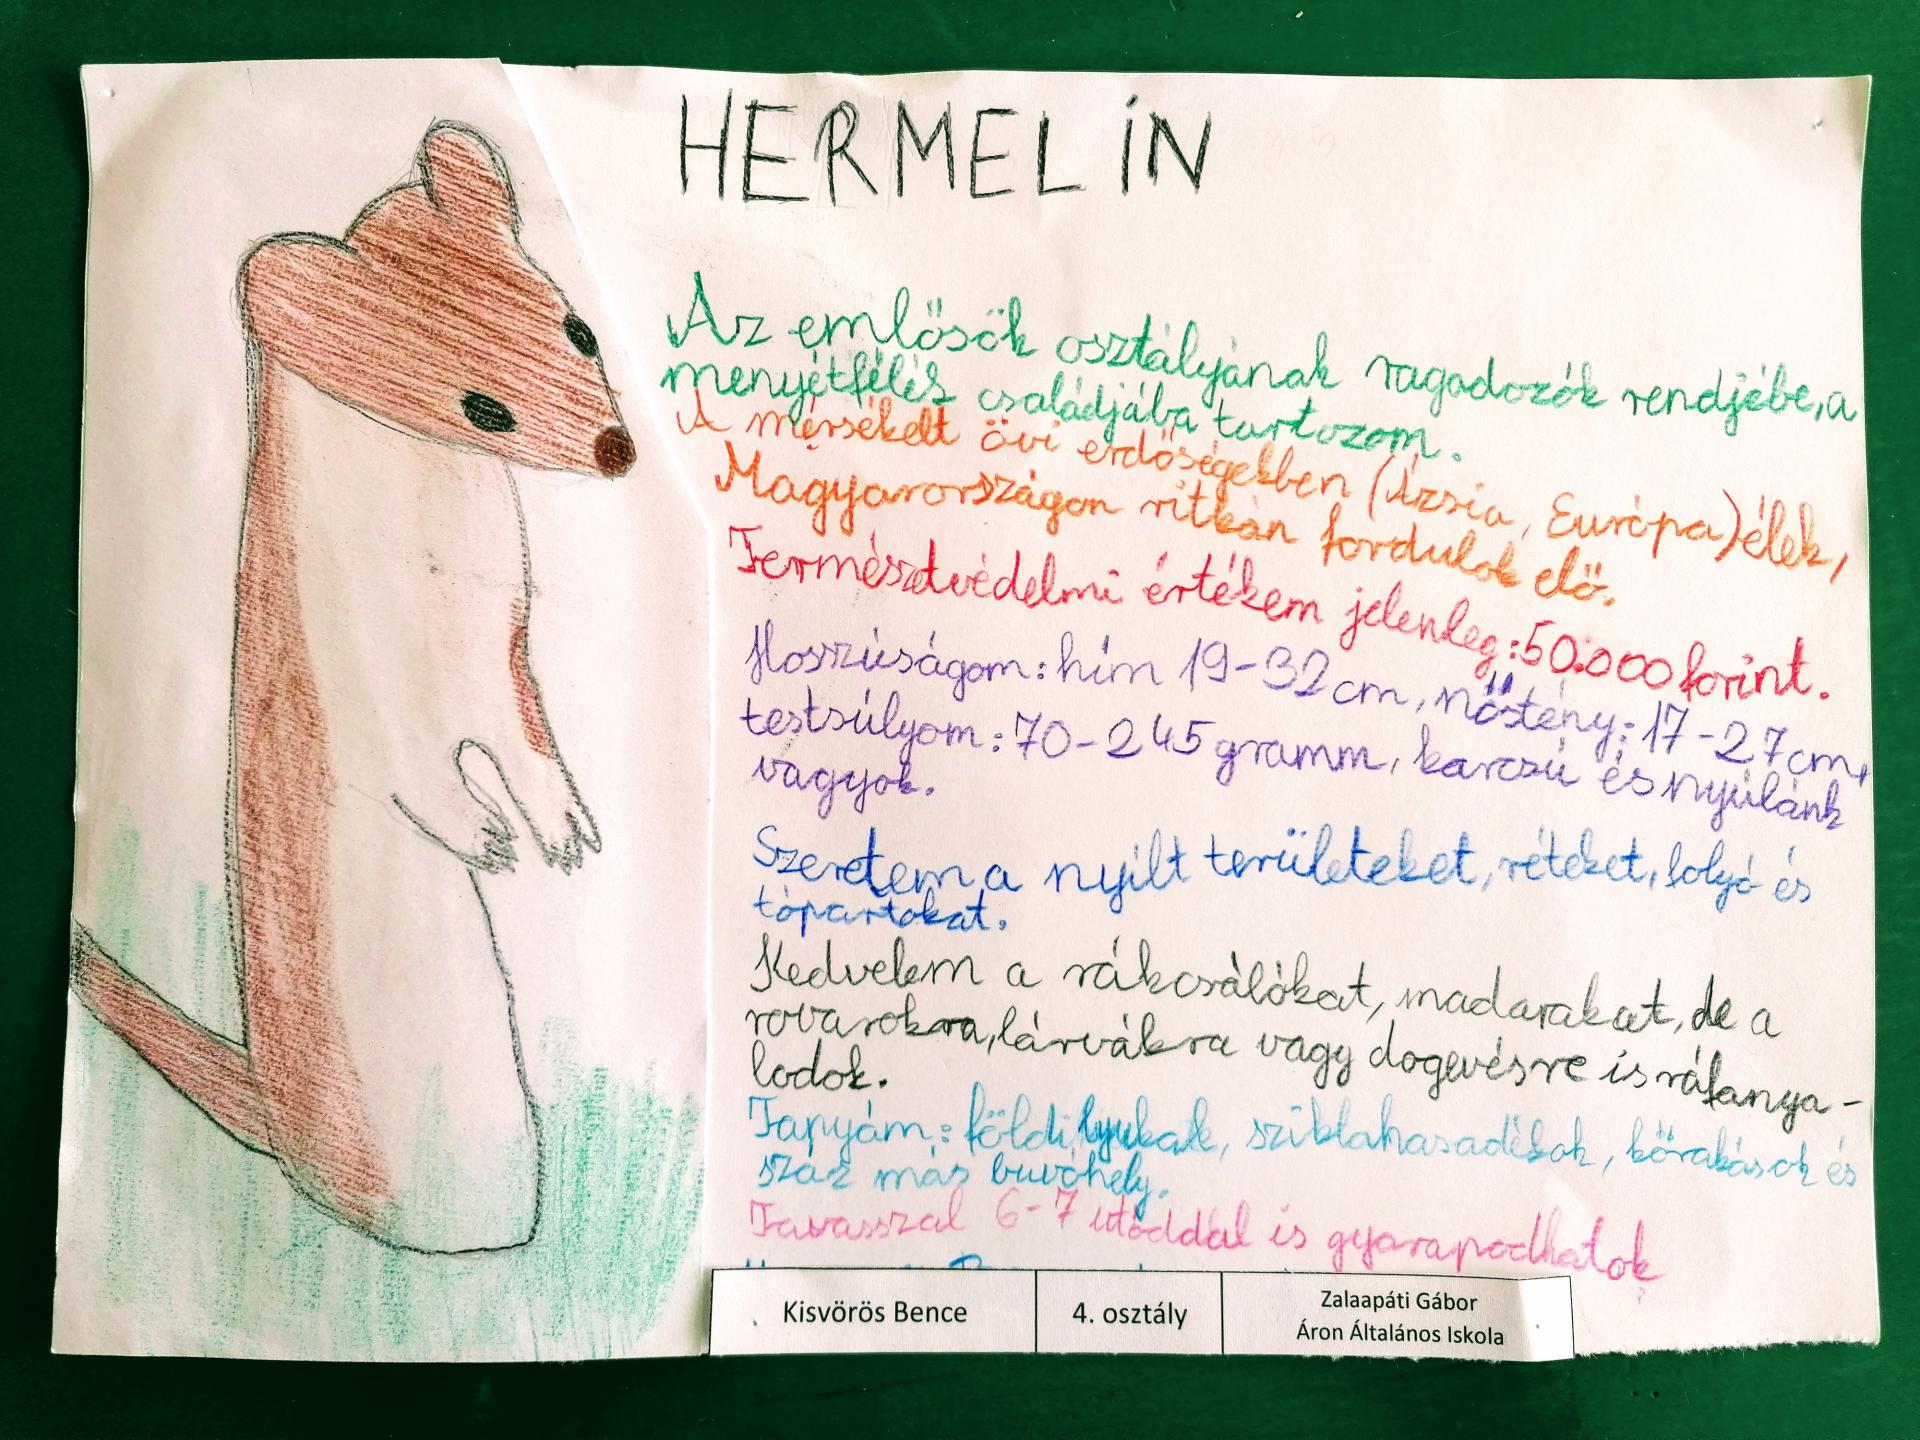 HERMELÍN
Az emlősök osztályának ragadozók rendjébe, a
menyétfélék családjába tartozom.
A mérsékelt övi erdőségekben (Ázsia, Európa) élek,
Magyarországon ritkán fordulok elő.
Természetvédelmi értékem jelenleg: 50.000 forint.
Hosszúságom: hím 19-32 cm, nőstény: 17-27 cm,
testsúlyom: 70-245 gramm, karcsú és nyúlánk
vagyok.
Szeretem a nyílt területeket, réteket, folyó és
tópartokat.
Kedvelem a rákcsálókat, madarakat, de a
rovarokra, lárvákra vagy dögevésre is ráfanya-
lodok.
Tanyám: földi lyukak, sziklahasadékok, kőrakások és
száz más búvóhely.
Tavasszal 6-7 utóddal is gyarapodhatok
Kisvörös Bence
4. osztály
Zalaapáti Gábor
Áron Általános Iskola